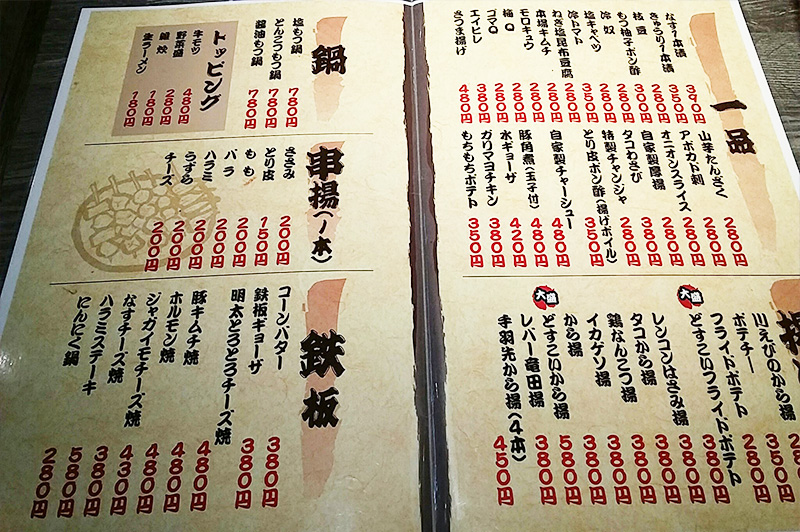 一品
なす1本漬 390円
きゅうり1本漬 350円
枝豆 280円
もつ柚子ポン酢 300円
冷奴
塩キャベツ 280円
冷トマト 280円
ねぎ塩昆布豆腐 350円
本場キムチ 280円
モロキュウ 250円
梅Q 280円
ゴマQ 280円
エイヒレ 380円
さつま揚げ 480円
山芋たんざく 280円
アボカド刺 280円
オニオンスライス 280円
自家製厚揚 380円
タコわさび 280円
特製チャンジャ 280円
とり皮ポン酢(揚げボイル) 350円
自家製チャーシュー 480円
豚角煮(玉子付) 480円
水ギョーザ 420円
ガリマヨチキン 380円
もちもちポテト 350円
川えびのから揚 350円
ポテチー 280円
フライドポテト
大盛 どすこいフライドポテト
レンコンはさみ揚 380円
タコから揚 380円
鶏なんこつ揚 380円
イカゲソ揚 380円
から揚 380円
大盛 どすこいから揚 580円
レバー竜田揚 380円
手羽先から揚(4本) 450円
鍋
塩もつ鍋 780円
とんこつもつ鍋 780円
醤油もつ鍋 780円
トッピング
牛モツ 480円
野菜盛 280円
雑炊 180円
生ラーメン 180円
串揚(1本)
ささみ 200円
とり皮 150円
もも 200円
バラ 200円
ハラミ 200円
うずら 200円
チーズ 200円
鉄板
コーンバター 380円
鉄板ギョーザ 380円
明太とろとろチーズ焼
豚キムチ焼 480円
ホルモン焼 480円
ジャガイモチーズ焼 480円
なすチーズ焼 430円
ハラミステーキ
にんにく鍋